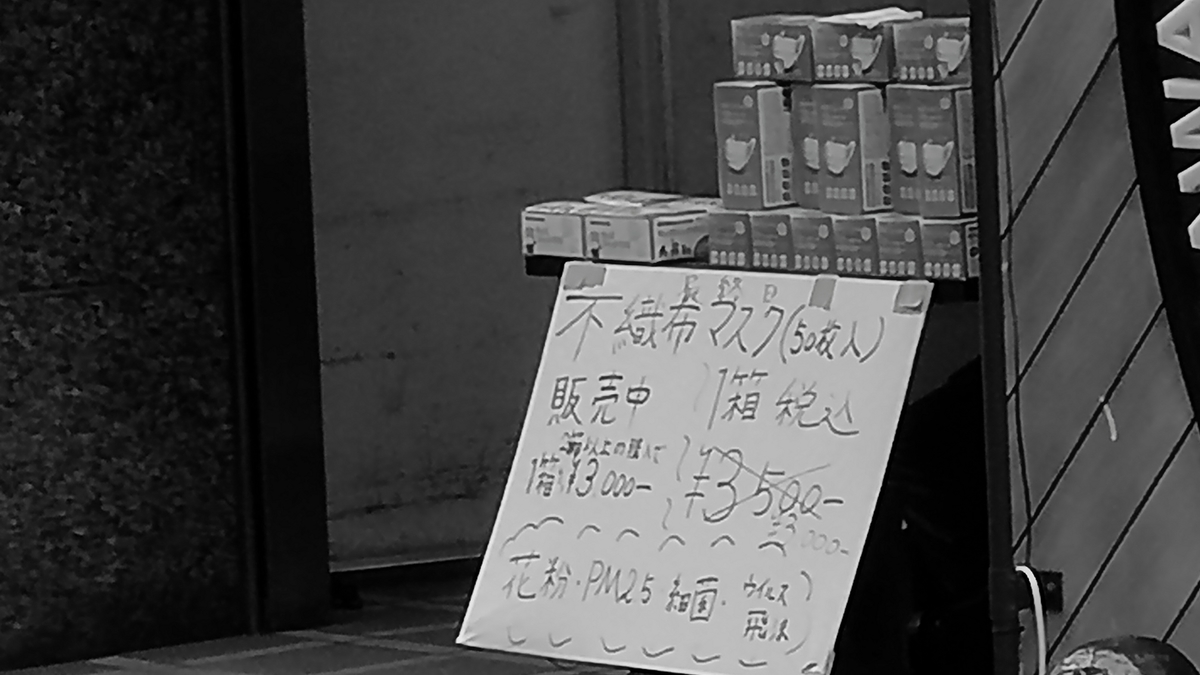 最終日
不織布マスク(50枚入)
販売中
1箱 税込
2箱以上の購入で
1箱 ¥3,000-
¥3500-
¥3,000-
花粉・PM2.5 細菌・ウイルス
飛沫